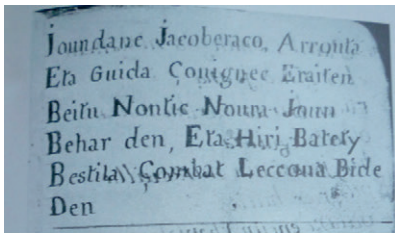 Joundane Jacoberaco, Arroula
Eta Guida Çonignec Eraiten
Beitu Nontic Noura Joun
Behar den, Eta Hiri Batety
Bestila\\ Çombat Leccoua Bide
Den